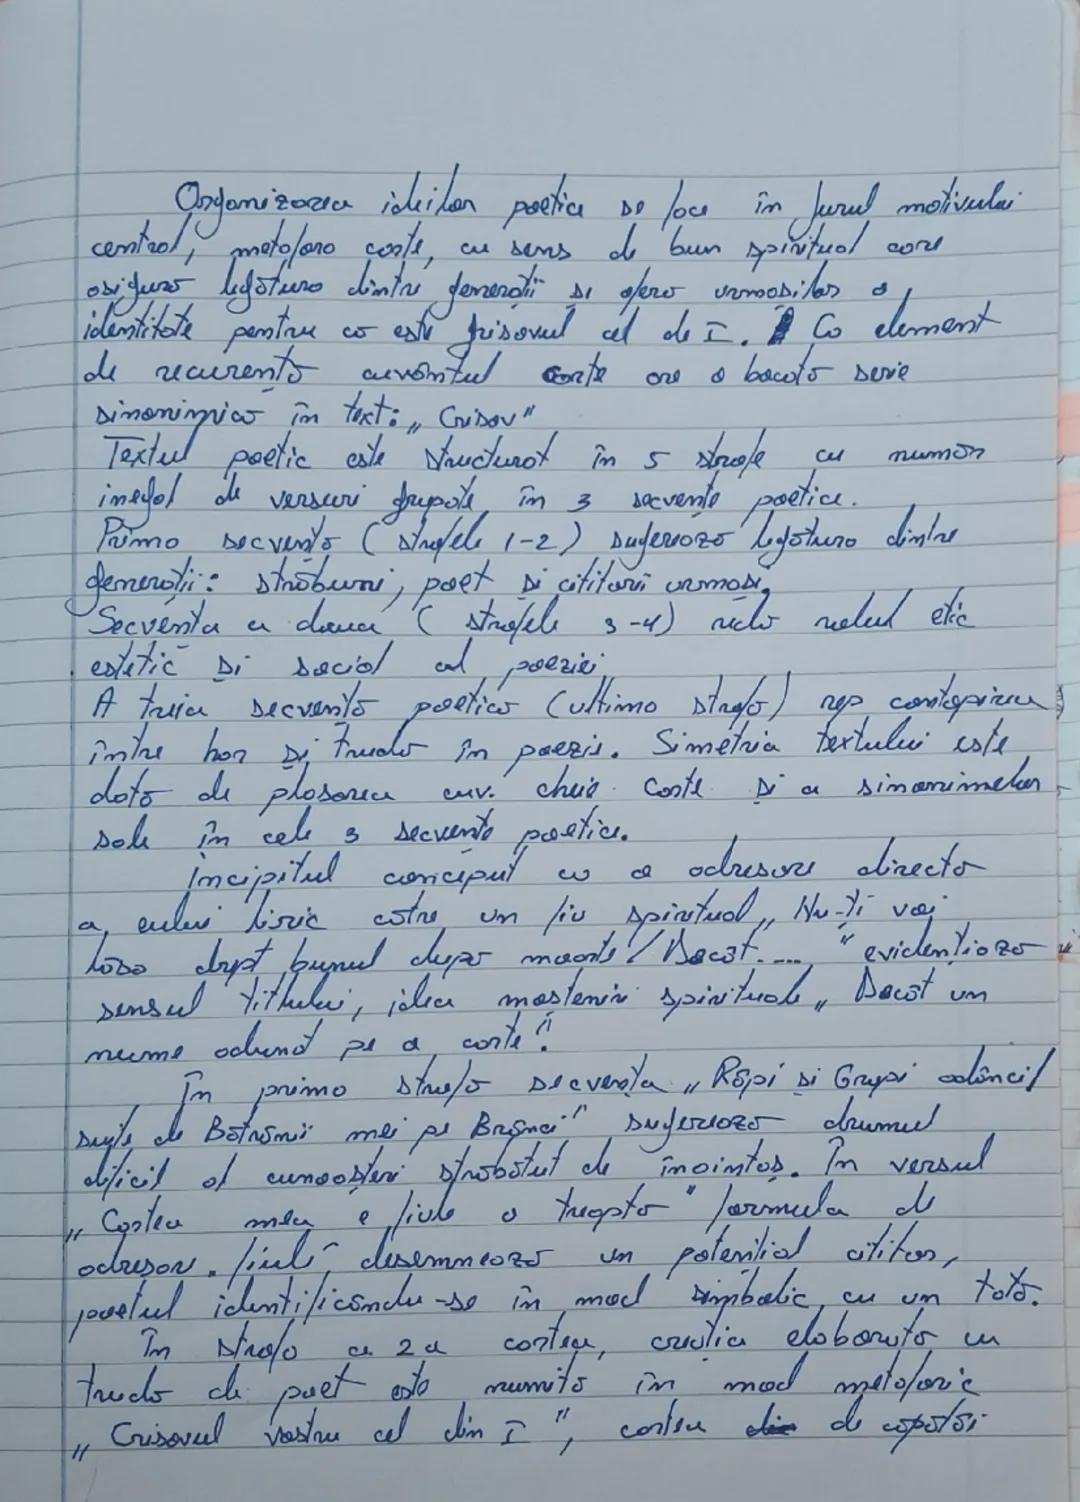 Organizarea ideilor poetice se face în jurul motivului
central, metafora carte, cu sens de bun spiritual care
asigură legătura dintre generații și oferă urmașilor o
identitate pentru că este hrisovul cel de I. Ca element
de recurență cuvântul carte are o bocată serie
sinonimică în text: „Crisov"
Textul poetic este structurat în 5 strofe cu număr
inegal de versuri grupate în 3 secvențe poetice.
Prima secvență (strofele 1-2) sugerează legătura dintre
generații: străbuni, poet și cititorii urmași.
Secvența a doua (strofele 3-4) redă rolul etic
estetic și social al poeziei
A treia secvență poetică (ultima strofă) rep contopirea
între har și trudă în poezie. Simetria textului este
dată de plasarea cuv. cheie carte și a sinonimelor
sale în cele 3 secvențe poetice.
Incipitul conceput ca o adresare directă
a eului liric către un fiu spiritual „Nu-ți voi
lăsa drept bunuri după moarte / Decât...." evidențiază
sensul titlului, ideea moștenirii spirituale „Decât un
nume adunat pe o carte".
În prima strofă secvența „Râpi și Gropi adânci/
suite de Bătrânii mei pe Brânci" sugerează drumul
dificil al cunoașterii străbătut de înaintaș. În versul
„Cartea mea e fiule o treaptă" formula de
adresare „fiule" desemnează un potențial cititor,
poetul identificându-se în mod simbolic cu un tată.
În strofa a 2 a cartea, creația elaborată cu
trudă de poet este numită în mod metaforic
„Crisovul vostru cel din I", cartea de căpătâi